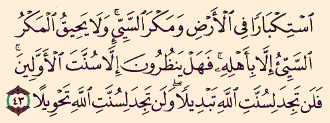 ٱسْتِكْبَارًا فِى ٱلْأَرْضِ وَمَكْرَ ٱلسَّيِّئِ ۚ وَلَا يَحِيقُ ٱلْمَكْرُ
ٱلسَّيِّئُ إِلَّا بِأَهْلِهِۦ ۚ فَهَلْ يَنظُرُونَ إِلَّا سُنَّتَ ٱلْأَوَّلِينَ ۚ
فَلَن تَجِدَ لِسُنَّتِ ٱللَّهِ تَبْدِيلًا ۖ وَلَن تَجِدَ لِسُنَّتِ ٱللَّهِ تَحْوِيلًا ٤٣